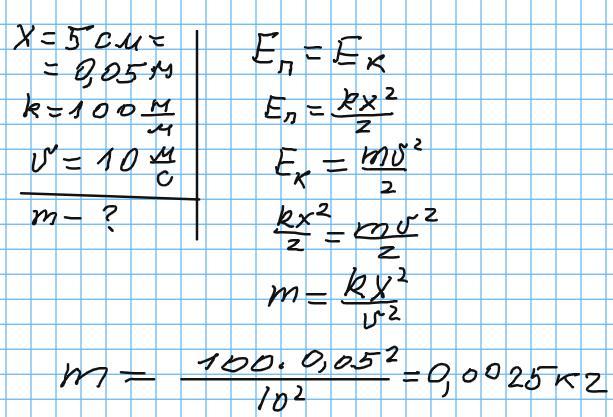 x = 5 см =
= 0,05 м
k = 100 м/м
v = 10 м/с
m - ?
Eп = Eк
Eп = kx²/2
Eк = mv²/2
kx²/2 = mv²/2
m = kx²/v²
m = 100 · 0,05²/10² = 0,0025 кг